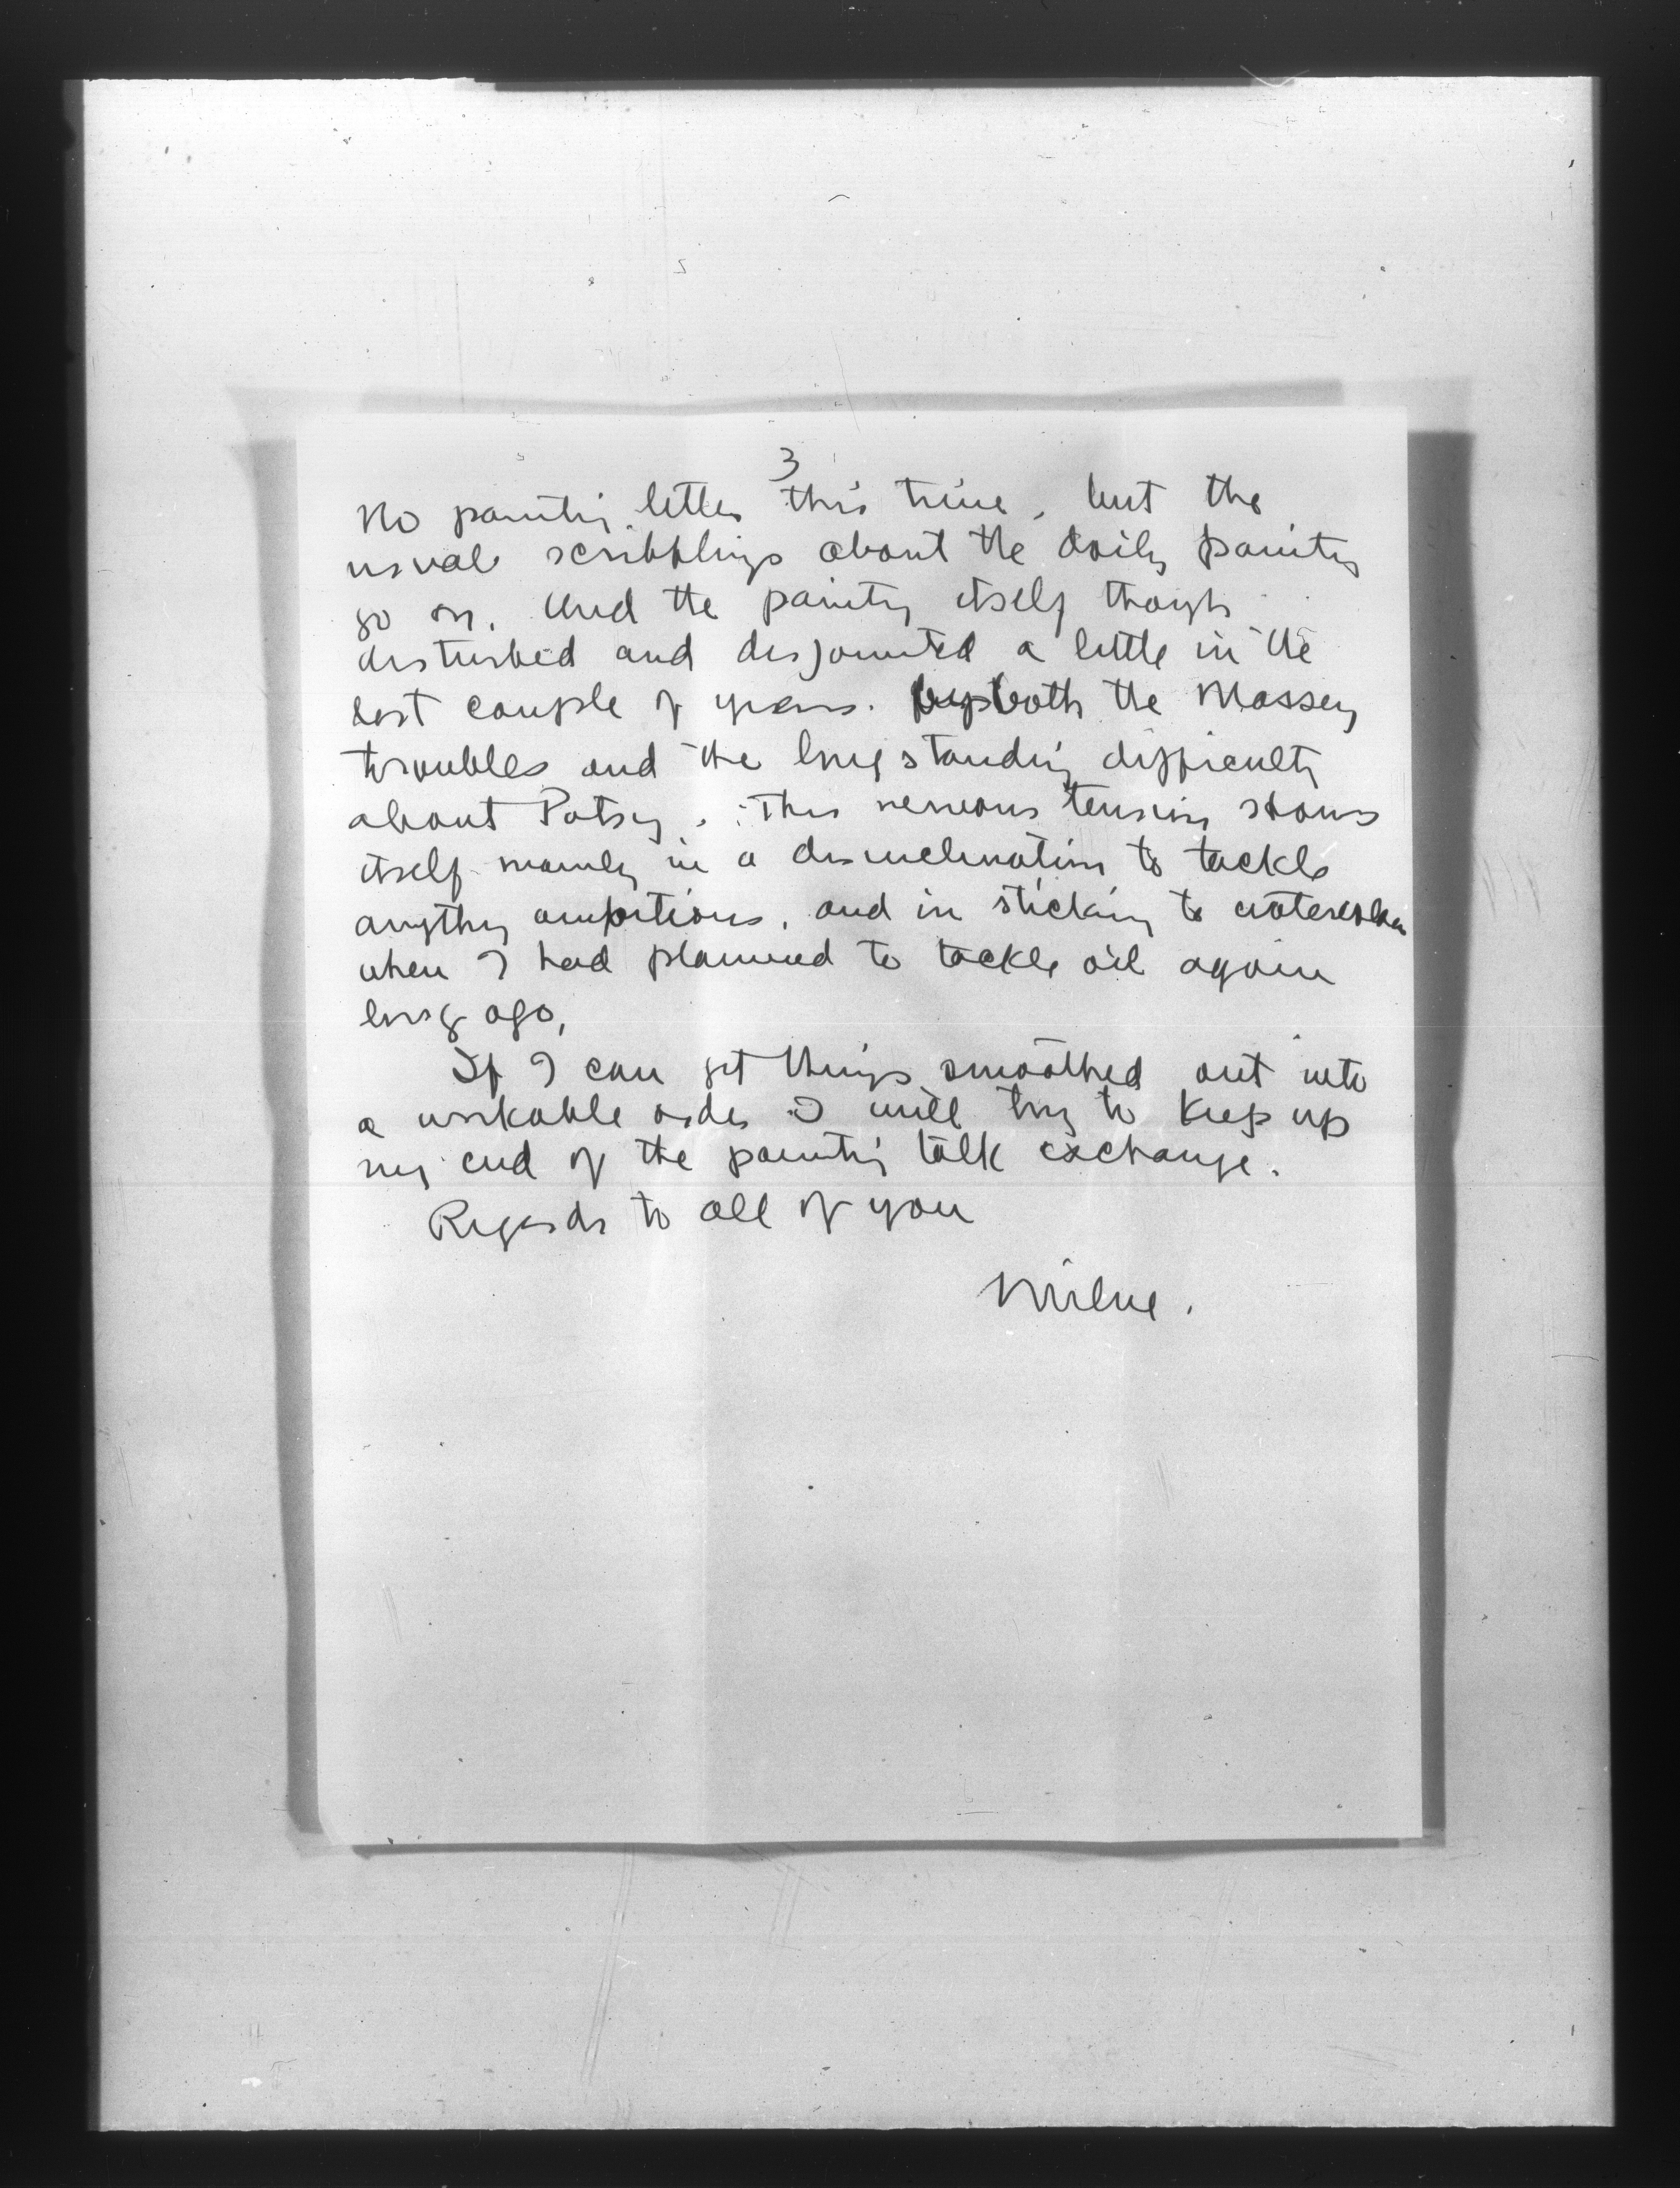 3
No painting letter this time, but the
usual scribblings about the daily painting
go on. And the painting itself though
disturbed and disjointed a little in the
last couple of years. by both the Massey
troubles and the long standing difficulty
about Patsy. This nervous tension shows
itself mainly in a disinclination to tackle
anything ambitious, and in sticking to watercolor
when I had planned to tackle oil again
long ago,
If I can get things smoothed out into
a workable order I will try to keep up
my end of the painting talk exchange.
Regards to all of you
Milne.